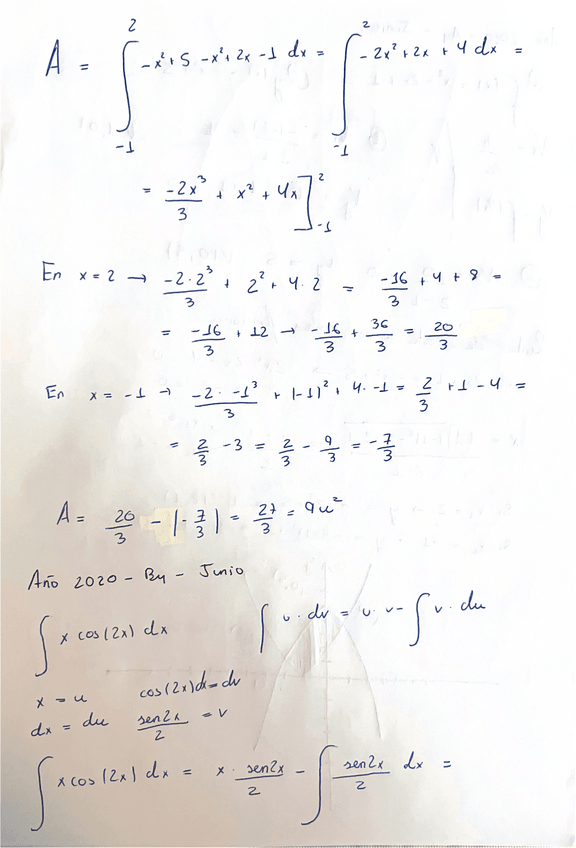 A = ∫_{-1}^{2} -x²+5 -x²+2x -1 dx = ∫_{-1}^{2} -2x²+2x+4 dx =
= -2x³/3 + x² + 4x ]_{-1}^{2}
En x=2 → -2·2³/3 + 2² + 4·2 = -16/3 + 4 + 8 =
= -16/3 + 12 → -16/3 + 36/3 = 20/3
En x=-1 → -2·-1³/3 + (-1)² + 4·-1 = 2/3 + 1 - 4 =
= 2/3 - 3 = 2/3 - 9/3 = -7/3
A = 20/3 - |-7/3| = 27/3 = 9u²
Año 2020 - By - Junio
∫ x cos(2x) dx ∫ u·dv = u·v - ∫ v·du
x = u cos(2x)dx = dv
dx = du sen2x/2 = v
∫ x cos(2x) dx = x · sen2x/2 - ∫ sen2x/2 dx =